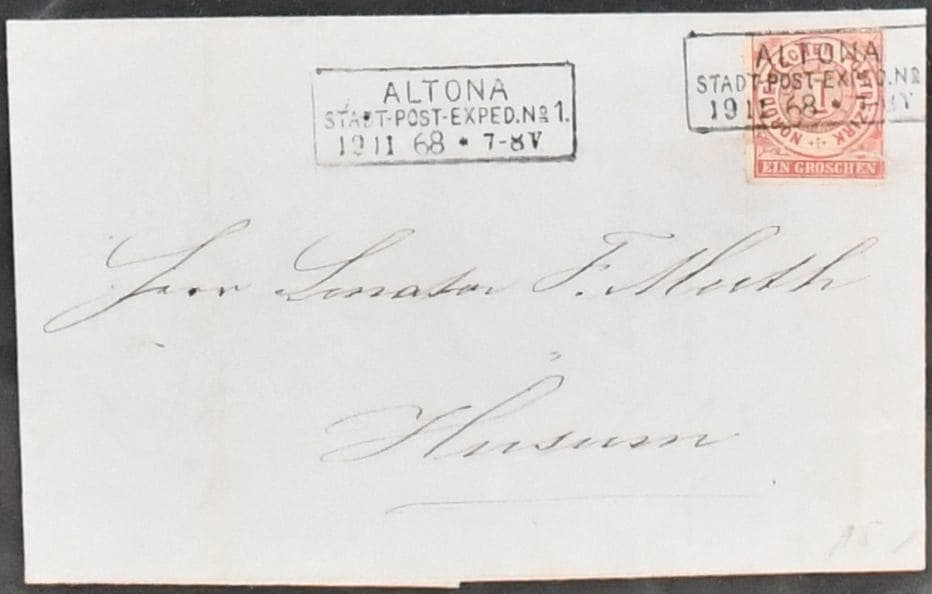 ALTONA
STADT-POST-EXPED.No 1.
19 11 68 * 7-8V
ALTONA
STADT-POST-EXPED.No
19 11 68 * 7- V
NORDDEUTSCHER POSTBEZIRK
1
EIN GROSCHEN
Herr Senator F. Muth
Husum